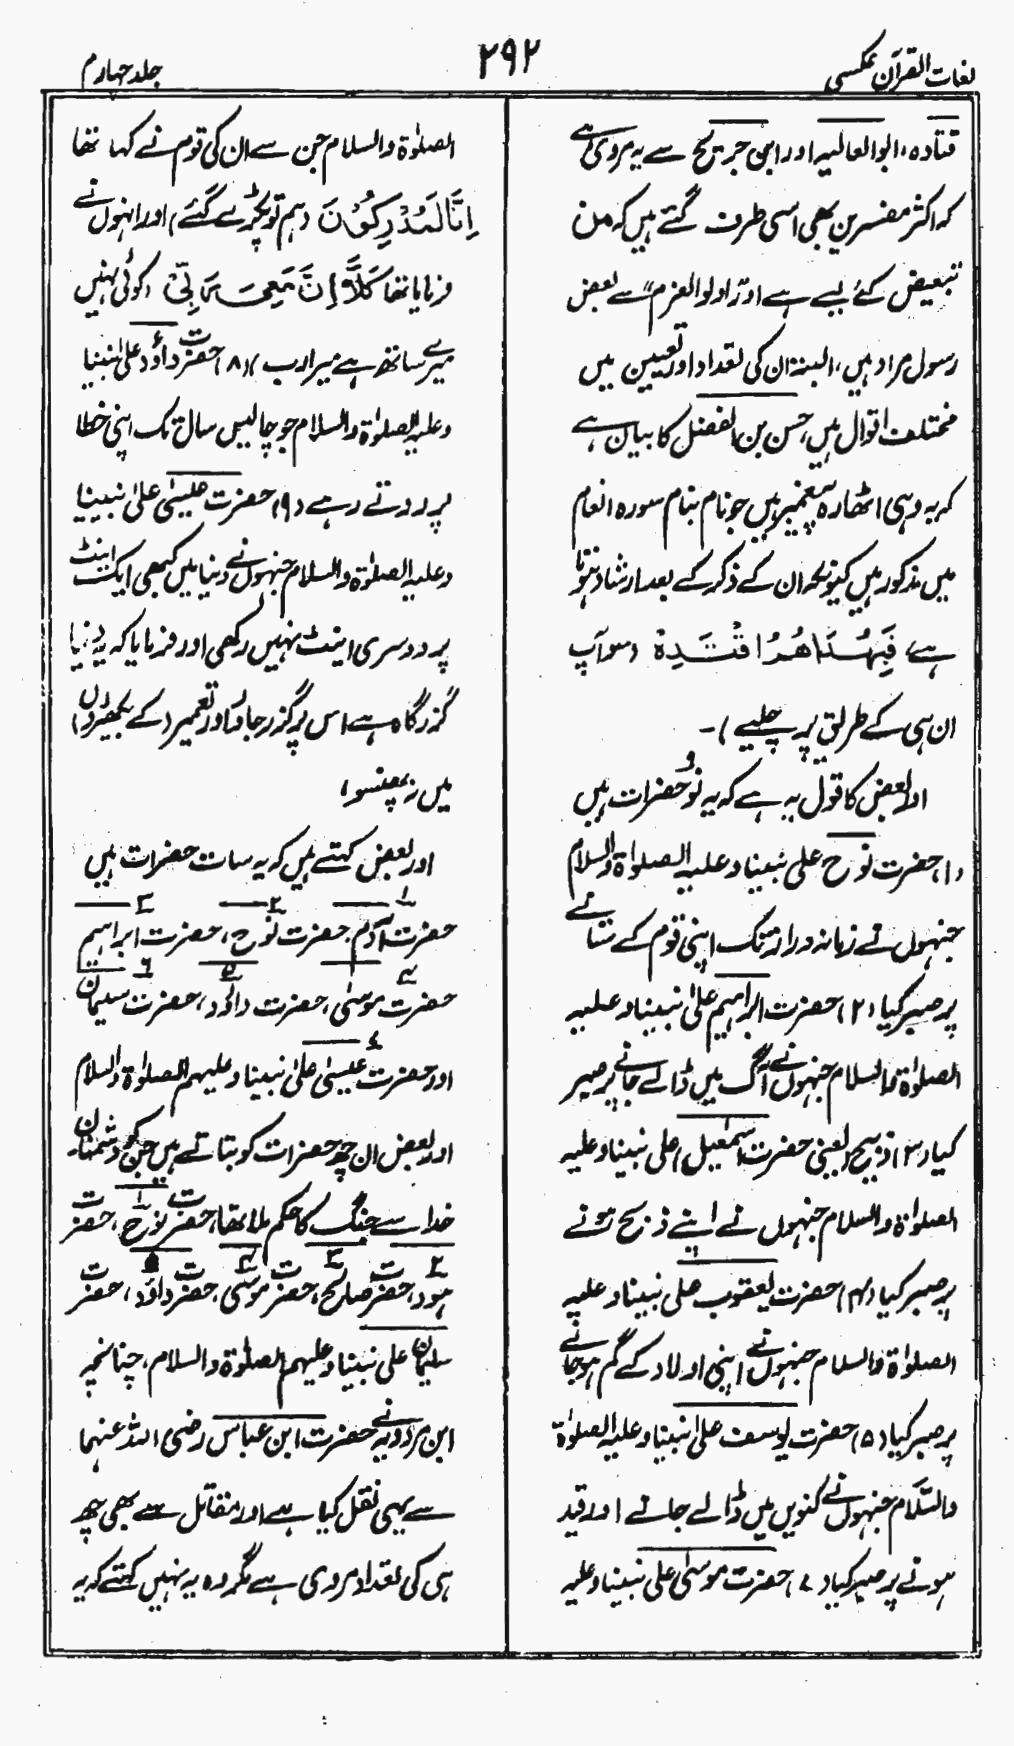 لغات القرآن عکسی
۲۹۲
جلد چہارم
قتادہ، ابوالعالیہ اور ابن جریج سے یہ مروی ہے
کہ اکثر مفسرین بھی اسی طرف گئے ہیں کہ من
تبعیض کے لیے ہے اور اولوالعزم" سے بعض
رسول مراد ہیں، البتہ ان کی تعداد اور تعیین میں
مختلف اقوال ہیں، حسن بن الفضل کا بیان ہے
کہ یہ وہی اٹھارہ پیغمبر ہیں جو نام بنام سورہ انعام
میں مذکور ہیں کیونکہ ان کے ذکر کے بعد ارشاد ہوتا
ہے فَبِهُدَاهُمُ اقْتَدِهْ (سو آپ
ان ہی کے طریق پر چلیے)۔
اور بعض کا قول یہ ہے کہ یہ نو حضرات ہیں
(۱) حضرت نوح علی نبینا وعلیہ الصلوٰۃ والسلام
جنہوں نے زمانہ دراز تک اپنی قوم کے ستانے
پر صبر کیا (۲) حضرت ابراہیم علیٰ نبینا وعلیہ
الصلوٰۃ والسلام جنہوں نے آگ میں ڈالے جانے پر صبر
کیا (۳) ذبیح (یعنی حضرت اسمٰعیل) علی نبینا وعلیہ
الصلوٰۃ والسلام جنہوں نے اپنے ذبح ہونے
پر صبر کیا (۴) حضرت یعقوب علی نبینا وعلیہ
الصلوٰۃ والسلام جنہوں نے اپنی اولاد کے گم ہو جانے
پر صبر کیا (۵) حضرت یوسف علیٰ نبینا وعلیہ الصلوٰۃ
والسَّلام جنہوں نے کنویں میں ڈالے جانے اور قید
ہونے پر صبر کیا (۷) حضرت موسیٰ علی نبینا وعلیہ
الصلوٰۃ والسلام جن سے ان کی قوم نے کہا تھا
اِنَّا لَمُدْرَكُوْنَ (ہم تو پکڑے گئے) اور انہوں نے
فرمایا تھا كَلَّا اِنَّ مَعِیَ رَبِّیْ (کوئی نہیں
میرے ساتھ ہے میرا رب) (۸) حضرت داؤد علیٰ نبینا
وعلیہ الصلوٰۃ والسلام جو چالیس سال تک اپنی خطا
پر روتے رہے (۹) حضرت عیسیٰ علیٰ نبینا
وعلیہ الصلوٰۃ والسلام جنہوں نے دنیا میں کبھی ایک اینٹ
پر دوسری اینٹ نہیں رکھی اور فرمایا کہ یہ دنیا
گزرگاہ ہے اس پر گزر جاؤ اور تعمیر (کے بکھیڑوں)
میں نہ پھنسو،
اور بعض کہتے ہیں کہ یہ سات حضرات ہیں
حضرت آدم، حضرت نوح، حضرت ابراہیم
حضرت موسیٰ، حضرت داؤد، حضرت سلیمان
اور حضرت عیسیٰ علیٰ نبینا وعلیہم الصلوٰۃ والسلام
اور بعض ان چھ حضرات کو بتاتے ہیں جن کو دشمنان
خدا سے جنگ کا حکم ملا تھا، حضرت نوح، حضرت
ہود، حضرت صالح، حضرت موسیٰ، حضرت داؤد، حضرت
سلیمان علی نبینا وعلیہم الصلوٰۃ والسلام، چنانچہ
ابن مردویہ نے حضرت ابن عباس رضی اللہ عنہما
سے یہی نقل کیا ہے اور مقاتل سے بھی چھ
ہی کی تعداد مروی ہے مگر وہ یہ نہیں کہتے کہ یہ